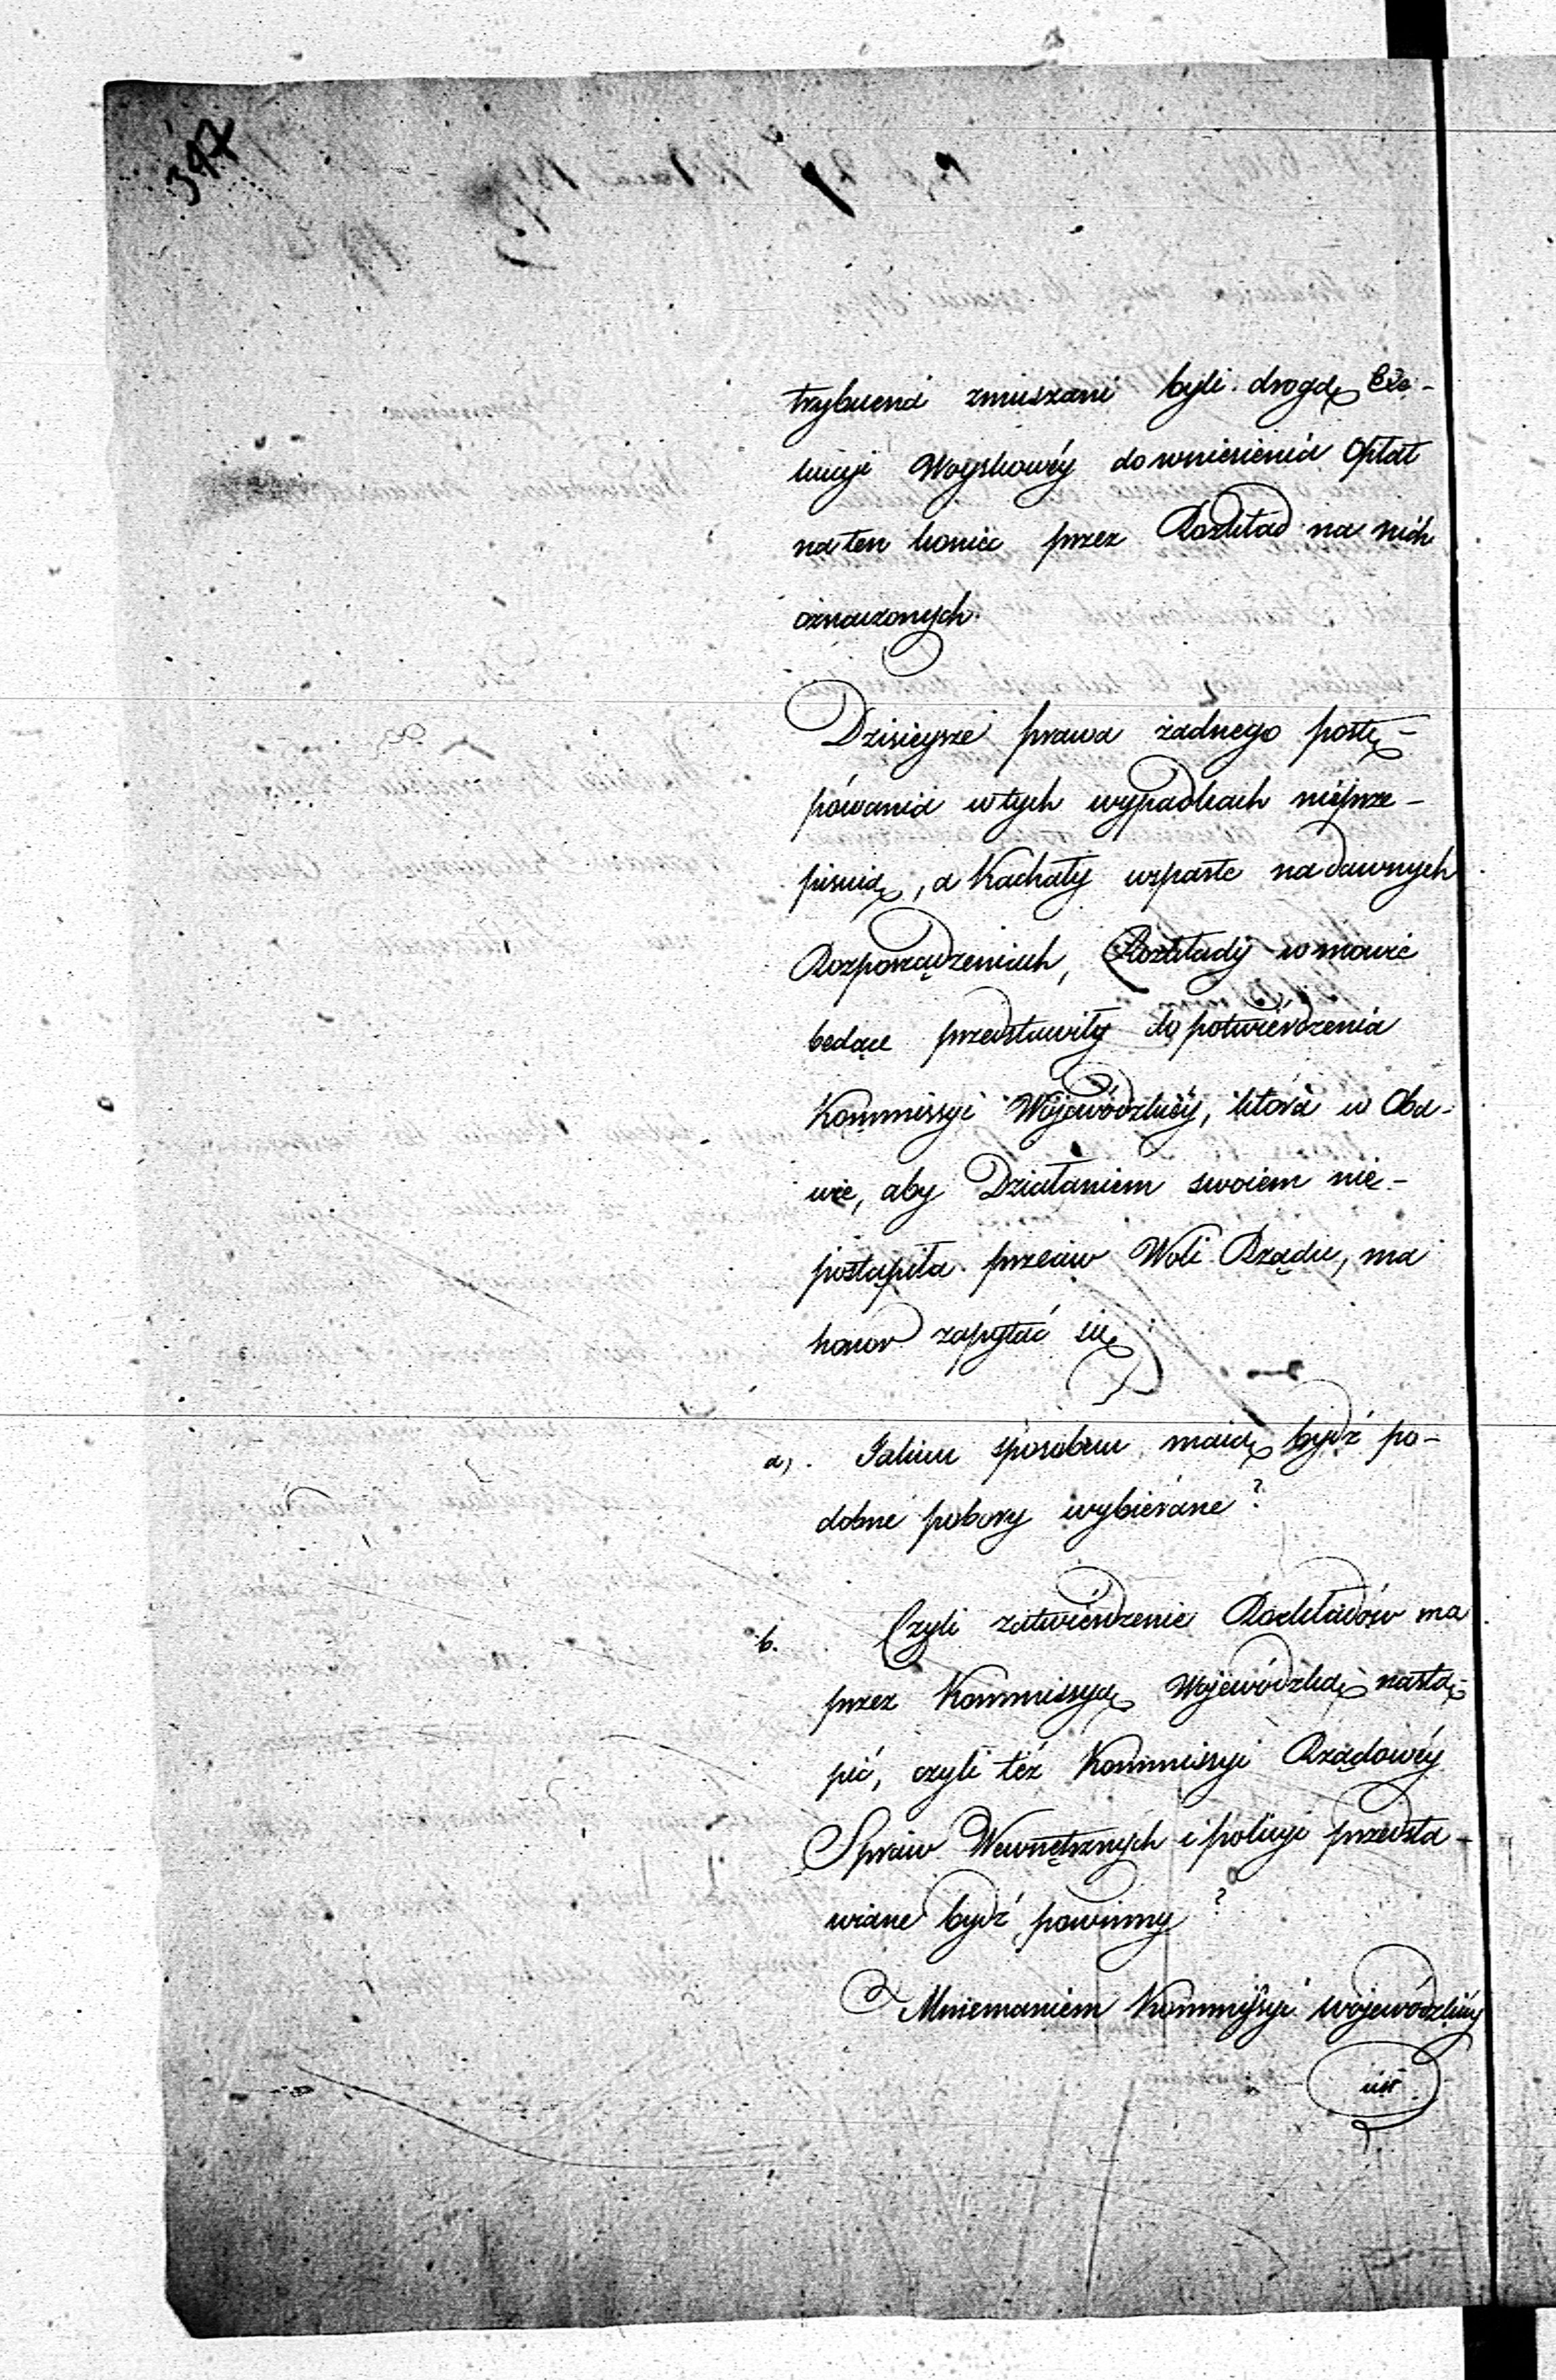 347
trybuená zmuszani byli drogą Exe-
kucyi Woyskowéy do wniesienia Opłat
na ten koniec przez Rozkład na nich
oznaczonych.
Dzisieysze prawa żadnego postę-
powania w tych wypadkach nieprze-
pisuią, a Kachały wsparte na dawnych
Rozporządzeniach, Rozkłady w mowie
będące przedstawiły do potwierdzenia
Kommissyi Wojewódzkiéy, która w Oba-
wie, aby Działaniem swoiem nie-
postąpiła przeciw Woli Rządu, ma
honor zapytać się
a). Jakim sposobem maią bydź po-
dobne pobory wybierane?
b. Czyli zatwierdzenie Rozkładów ma
przez Kommissyą Wojewódzką nastą-
pić, czyli téż Kommissyi Rządowéy
Spraw Wewnętrznych i policyi przedsta-
wiane bydź powinny?
Mniemaniem Kommissyi Wojewódzkiéy
iest